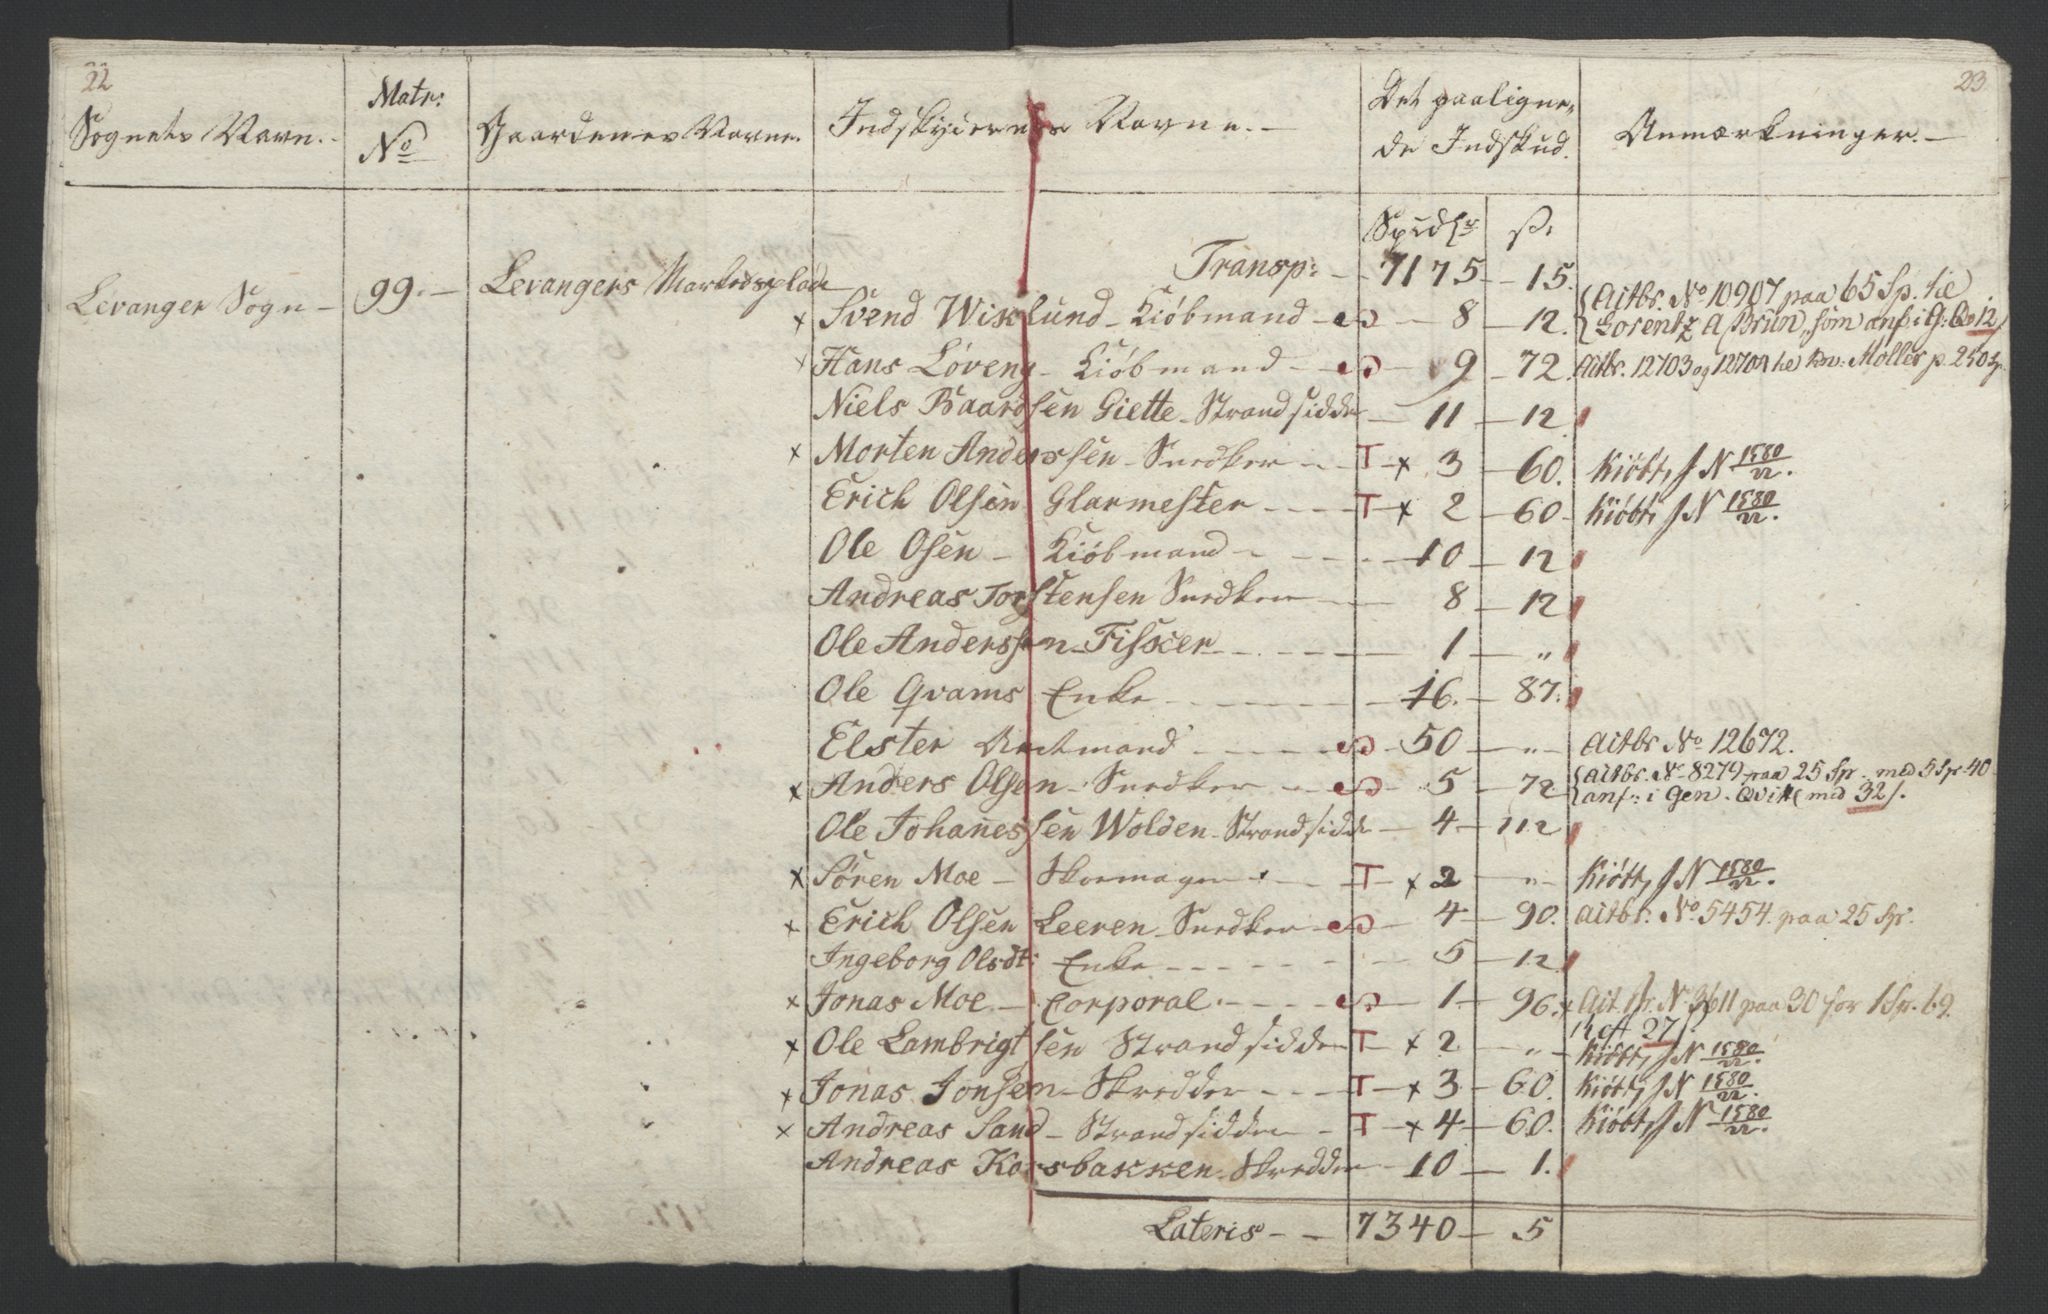 22
23
Sognets Navn.
Matr: No
Gaardenes Navne.
Indskydernes Navne.
Det paaligne-
de Indskud.
Anmærkninger.
Spedlr ß.
Levanger Sogn 99. Levangers Markedsplads Transp: 7175 15.
x Svend Wiklund Kiöbmand 8 12. Aitbr. No 10907 paa 65 Sp. til
Lorentz A Brun, som anf. i G: Qv 12 ß
x Hans Lóveng Kiöbmand 9 72. Aitbr. 12703 og 12704 til Møller p. 250 Sp
Niels Baardsen Giette Strandsidder 11 12
x Morten Anderssen Snedker T x 3 60. Kiöbt, J N 1580/22.
Erich Olsen Glarmester T x 2 60 Kiöbt, J N 1580/22.
Ole Olsen Kiöbmand 10 12
Andreas Torstensen Snedker 8 12
Ole Anderssen Fisker 1 "
Ole Qvams Enke 16. 87.
Elster Amtmand 50 " Aitbr. No 12672.
x Anders Olsen Snedker 5 72 Aitbr. No 8279 paa 25 Sp. med 5 Sp 40
anf: i Gen. Qvitt med 32 ß.
Ole Johanessen Wolden Strandsidder 4 112
x Sören Moe Skomager T x 2 " Kiöbt, J N 1580/22.
x Erich Olsen Leeren Snedker 4 90. Aitbr. No 5454. paa 25 Sp.
Ingeborg Olsdt: Enke 5 12
x Jonas Moe Corporal. 1. 96. x Ait.br. N. 3611 paa 30 for 1 Sp. 69.
27 ß.
x Ole Lambrigtsen Strandsidder T x 2 " Kiöbt, J N 1580/22.
x Jonas Jonsen Skredder T x 3 60. Kiöbt, J N 1580/22.
x Andreas Sand Strandsidder T x 4 60. Kiöbt, J N 1580/22.
Andreas Korsbakken Skredder 10 1.
Lateris 7340 5